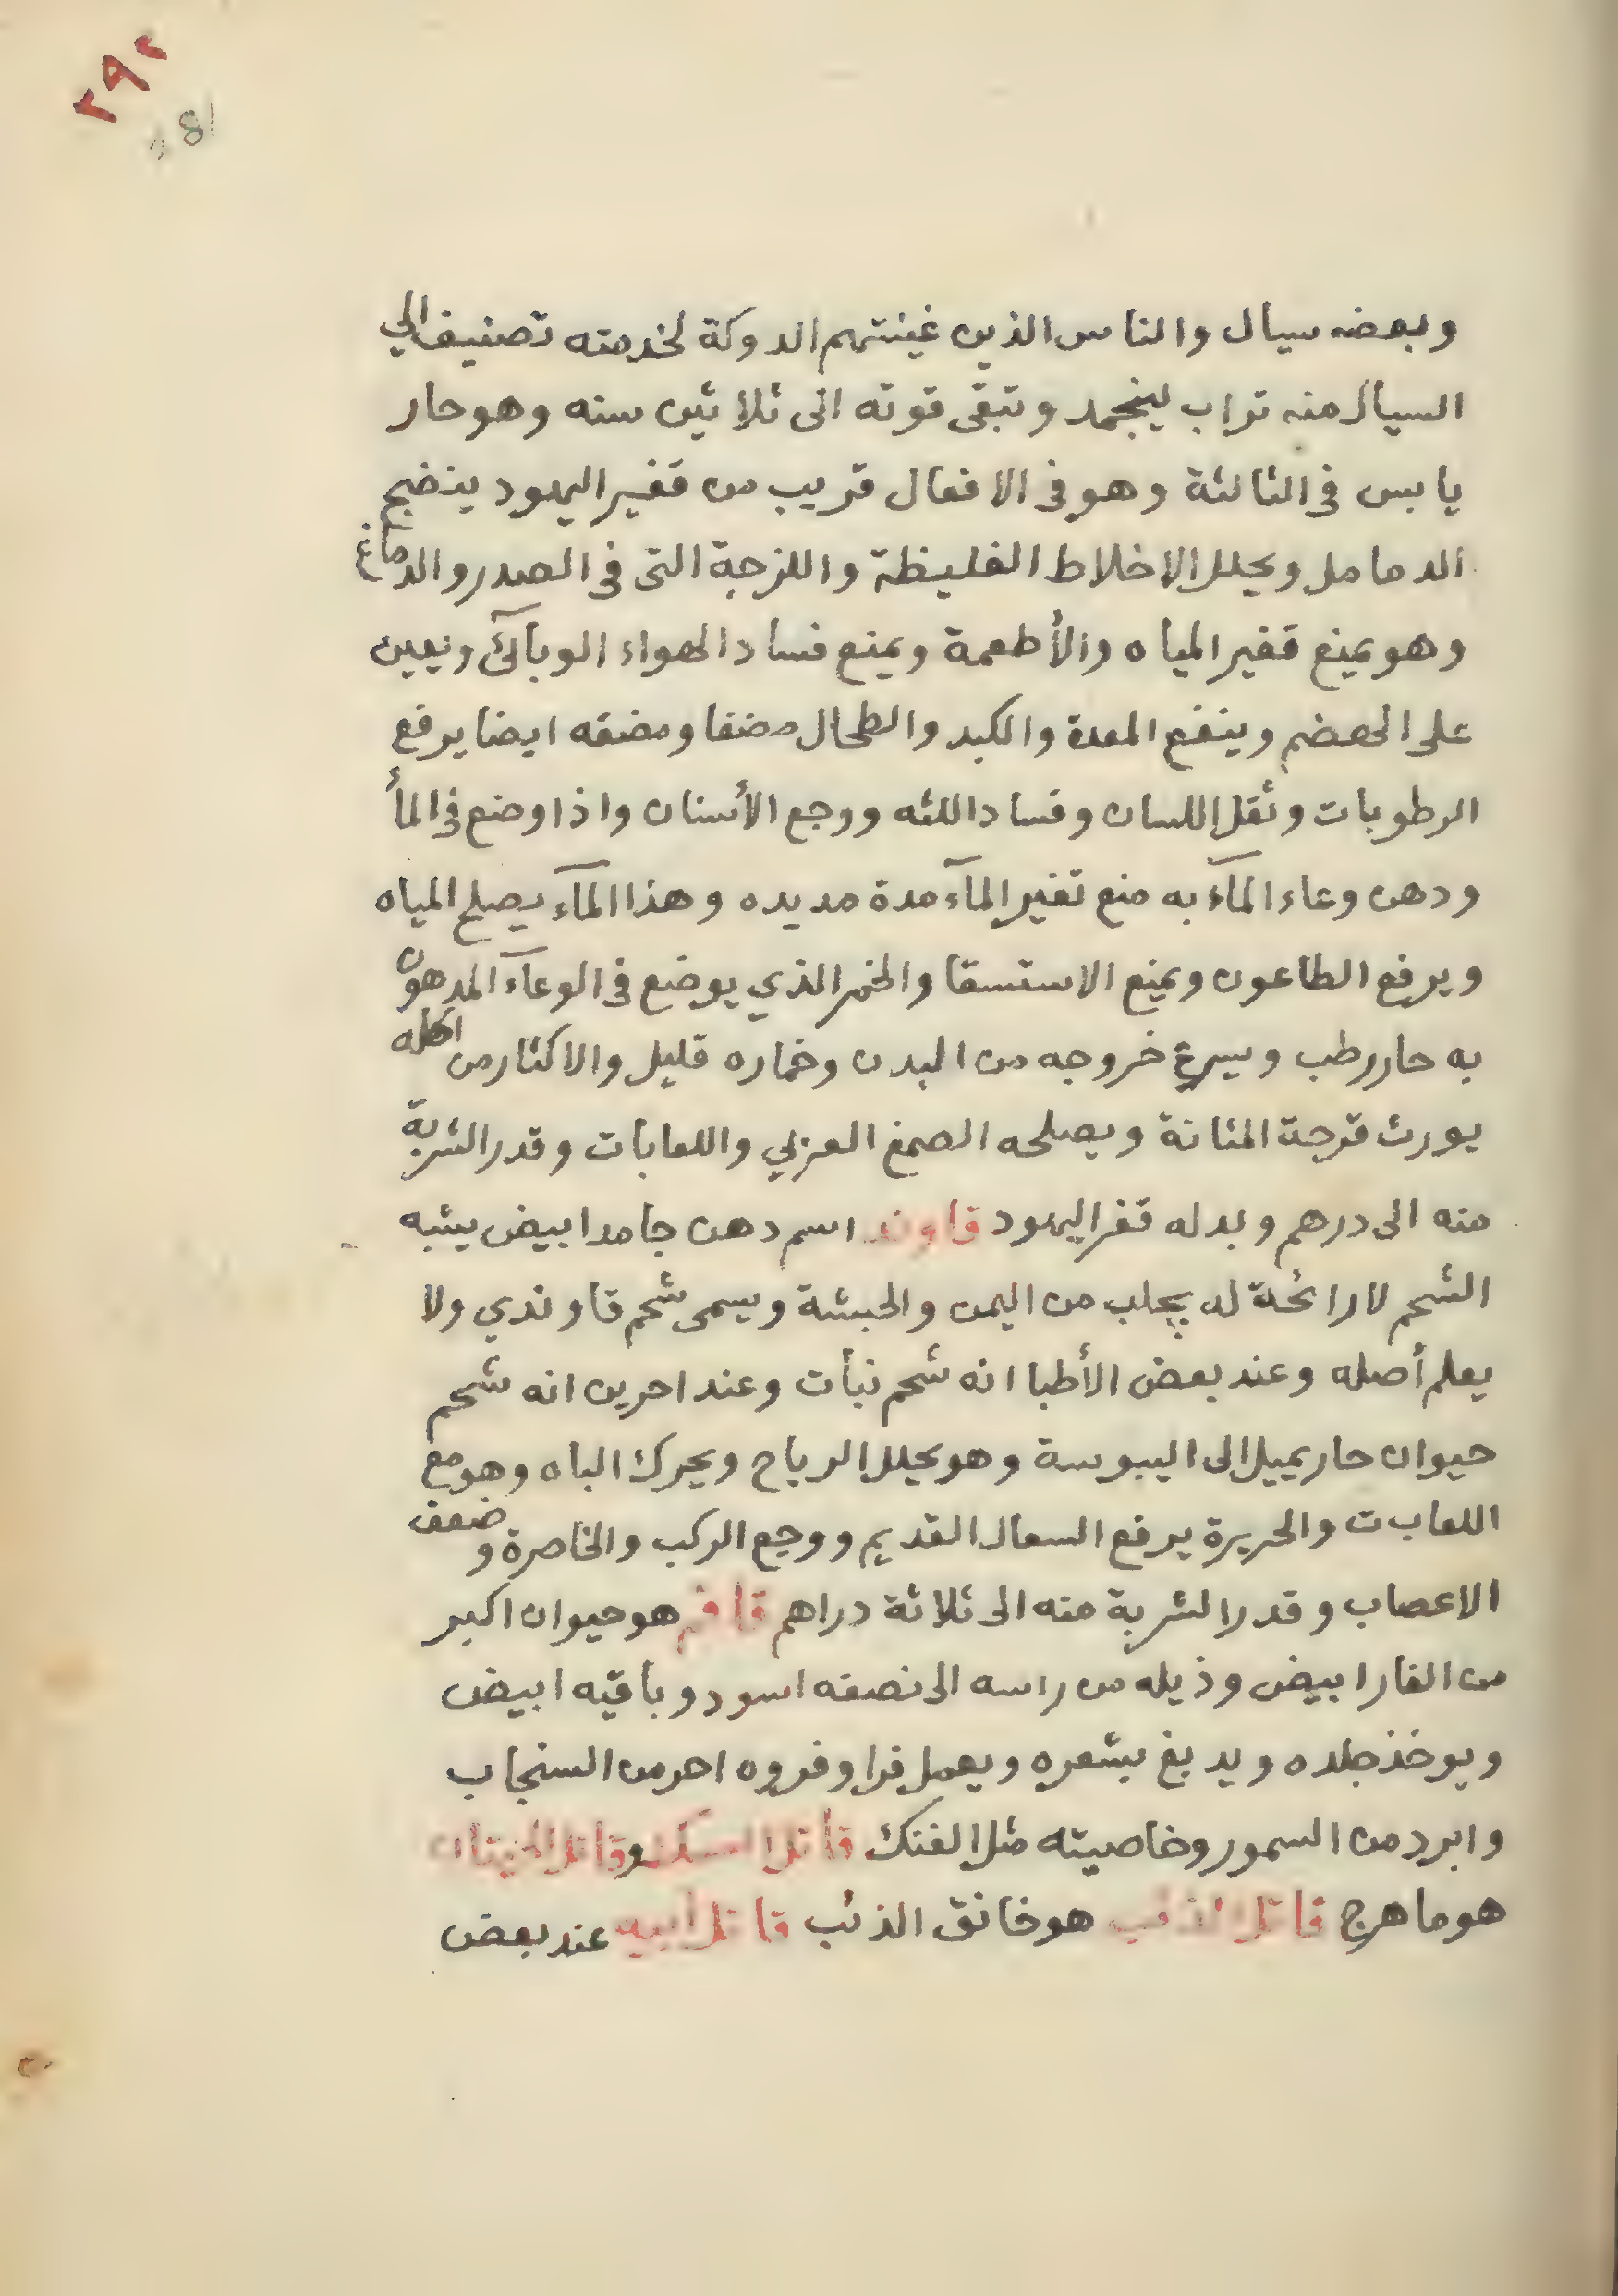 ٢٩٢
181
وبعضه سيال والناس الذين عينتهم الدوكة لخدمته تصنيف الي
السيال منه تراب لينجمد وتبقى قوته الى ثلاثين سنه وهو حار
يابس فى الثالثة وهو فى الافعال قريب من قفير اليهود ينضج
الدمامل ويحلل الاخلاط الغليظة واللزجة التى فى الصدر والدماغ
وهو يمنع قفير المياه والأطعمة ويمنع فساد الهواء الوبآئى ويعين
على الهضم وينفع المعدة والكبد والطحال مضغا ومضغه ايضا يرفع
الرطوبات وثقل اللسان وفساد اللثه ووجع الأسنان واذا وضع فى المأ
ودهن وعاء المآء به منع تغير المآء مدة مديده وهذا المآء يصلح المياه
ويرفع الطاعون ويمنع الاستسقا والخمر الذي يوضع فى الوعآء المدهون
به حار رطب ويسرع خروجه من البدن وخماره قليل والاكثار من اكله
يورث قرحة المثانة ويصلحه الصمغ العربي واللعابات وقدر الشربة
منه الى درهم وبدله قفر اليهود قاوند اسم دهن جامد ابيض يشبه
الشحم لا رائحة له يجلب من اليمن والحبشة ويسمى شحم قاوندي ولا
يعلم أصله وعند بعض الأطبا انه شحم نبات وعند اخرين انه شحم
حيوان حار يميل الى اليبوسة وهو يحلل الرياح ويحرك الباه وهو مع
اللعاب ت والحريرة يرفع السعال القديم ووجع الركب والخاصرة وضعف
الاعصاب وقدر الشربة منه الى ثلاثة دراهم قاقم هو حيوان اكبر
من الفار ابيض وذيله من راسه الى نصفه اسود وباقيه ابيض
ويوخذ جلده ويدبغ بشعره ويعمل فرا وفروه احر من السنجاب
وابرد من السمور وخاصيته مثل الفنك قاتل السمك وقاتل الحيتان
هو ماهرج قاتل الذئب هو خانق الذئب قاتل ابيه عند بعض